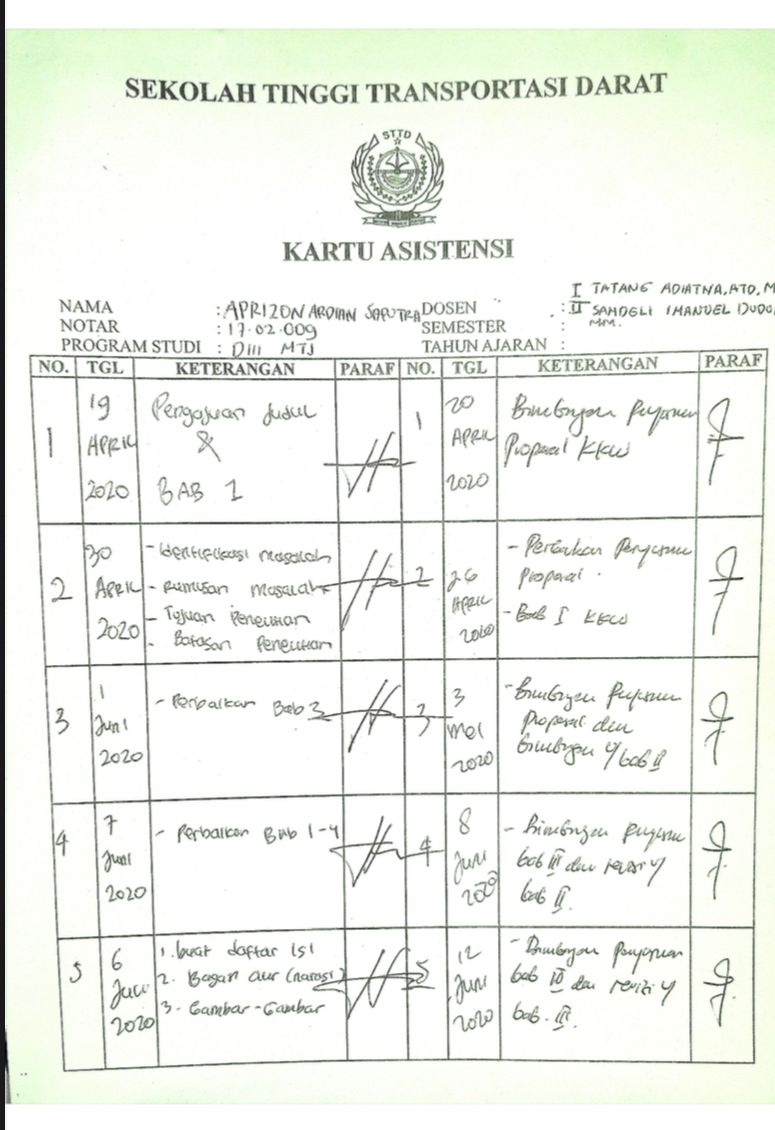 SEKOLAH TINGGI TRANSPORTASI DARAT
STTD
KARTU ASISTENSI
NAMA : APRIZON ARDIAN SAPUTRA
NOTAR : 17.02.009
PROGRAM STUDI : DIII MTJ
DOSEN : I TATANG ADIATNA, ATD, M
II SAMDELI IMANUEL DUDU,
MM.
SEMESTER :
TAHUN AJARAN :
NO. TGL KETERANGAN PARAF NO. TGL KETERANGAN PARAF
1
19
APRIL
2020
Pengajuan Judul
&
BAB 1
1
20
APRIL
2020
Bimbingan
Proposal KKW
2
30
APRIL
2020
- Identifikasi Masalah
- Rumusan Masalah
- Tujuan Penelitian
- Batasan Penelitian
2
26
APRIL
2020
- Perbaikan
Proposal
- Bab I KKW
3
1
Juni
2020
- Perbaikan Bab 3
3
3
Mei
2020
- Bimbingan
Proposal dan
bimbingan bab II
4
7
Juni
2020
- Perbaikan Bab 1-4
4
8
Juni
2020
- Bimbingan
bab III dan revisi
bab II.
5
6
Juli
2020
1. buat daftar isi
2. Bagan alir (narasi)
3. Gambar-Gambar
5
12
Juni
2020
- Bimbingan
bab IV dan revisi
bab. III.